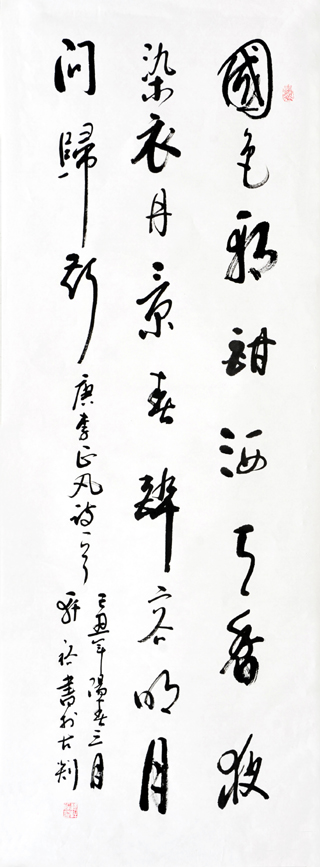 國色朝酣酒天香夜
染衣丹景春醉容明月
问歸期 唐李正封诗一首
己丑年陽春三月
書於古荆